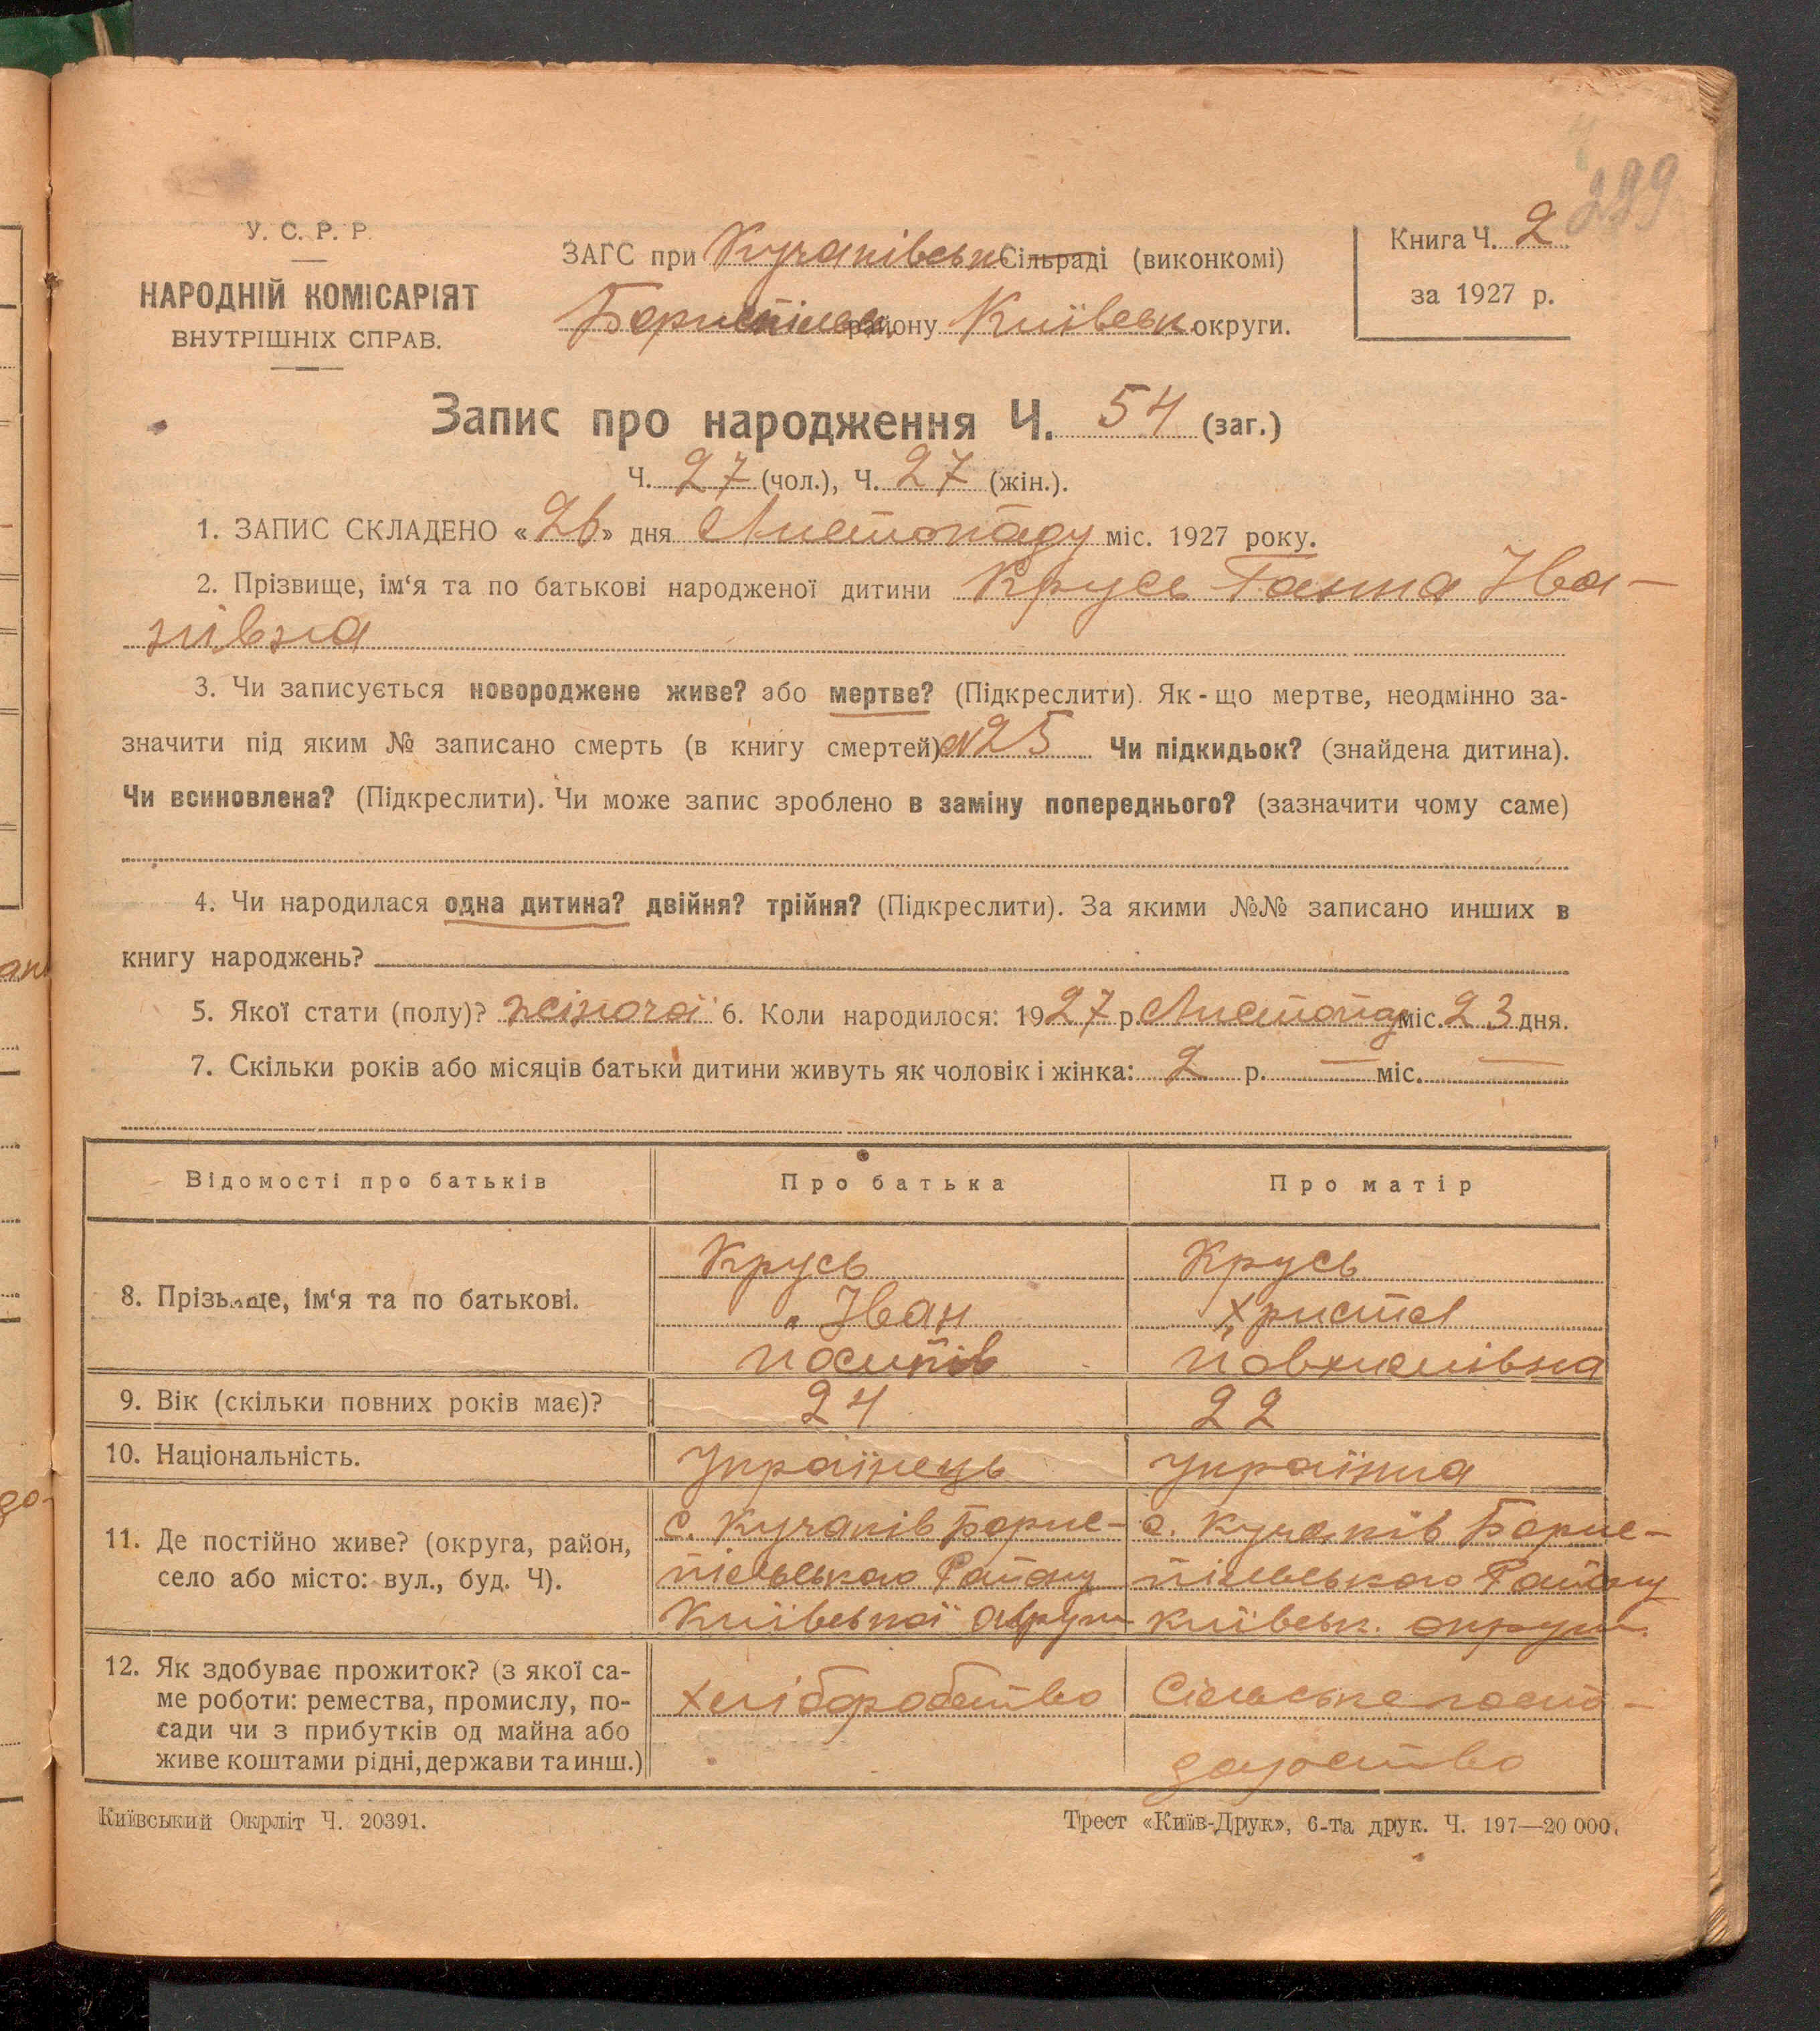 299
У. С. Р. Р.
НАРОДНІЙ КОМІСАРІЯТ
ВНУТРІШНІХ СПРАВ.
ЗАГС при Кучаківськ Сільраді (виконкомі)
Бориспільськ. району Київськ округи.
Книга Ч. 2
за 1927 р.
Запис про народження Ч. 54 (заг.)
Ч. 27 (чол.), Ч. 27 (жін.).
1. ЗАПИС СКЛАДЕНО «26» дня Листопаду міс. 1927 року.
2. Прізвище, ім‘я та по батькові народженої дитини Крусь Ганна Іва-
нівна
3. Чи записується новороджене живе? або мертве? (Підкреслити). Як-що мертве, неодмінно за-
значити під яким № записано смерть (в книгу смертей) №25 Чи підкидьок? (знайдена дитина).
Чи всиновлена? (Підкреслити). Чи може запис зроблено в заміну попереднього? (зазначити чому саме)
4. Чи народилася одна дитина? двійня? трійня? (Підкреслити). За якими №№ записано инших в
книгу народжень?
5. Якої стати (полу)? жіночої 6. Коли народилося: 1927 р. Листопад міс. 23 дня.
7. Скільки років або місяців батьки дитини живуть як чоловік і жінка: 2 р. — міс. —
Відомості про батьків
Про батька
Про матір
8. Прізвище, ім‘я та по батькові.
Крусь
Іван
Посипів
Крусь
Христя
9. Вік (скільки повних років має)?
24
22
10. Національність.
Українець
Українка
11. Де постійно живе? (округа, район,
село або місто: вул., буд. Ч).
с. Кучаків Борис-
пільського Району
Київської округи
с. Кучаків Борис-
пільського Району
Київськ. округи.
12. Як здобуває прожиток? (з якої са-
ме роботи: ремества, промислу, по-
сади чи з прибутків од майна або
живе коштами рідні, держави та инш.)
хліборобство
Сільське госпо-
дарство
Київський Окрліт Ч. 20391.
Трест «Київ-Друк», 6-та друк. Ч. 197—20 000.